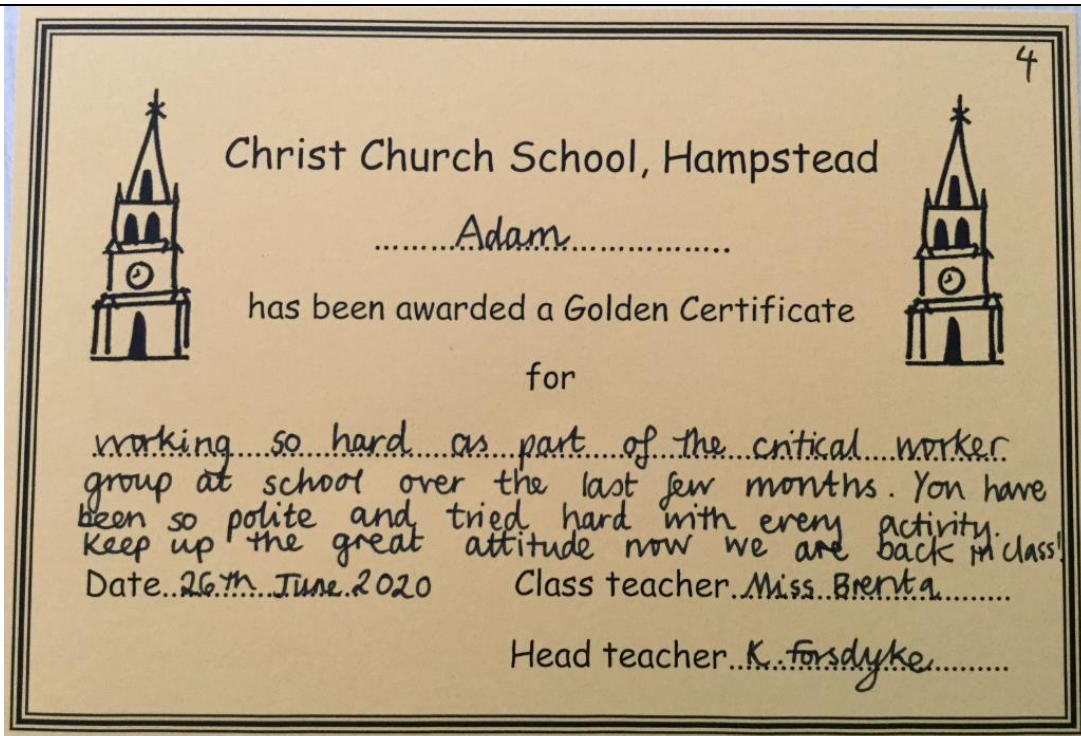 4
Christ Church School, Hampstead
.........Adam.................................
has been awarded a Golden Certificate
for
working so hard as part of the critical worker
group at school over the last few months. You have
been so polite and tried hard with every activity.
Keep up the great attitude now we are back in class!
Date..26th June 2020 Class teacher..Miss Brenta.........
Head teacher..K. Forsdyke.........